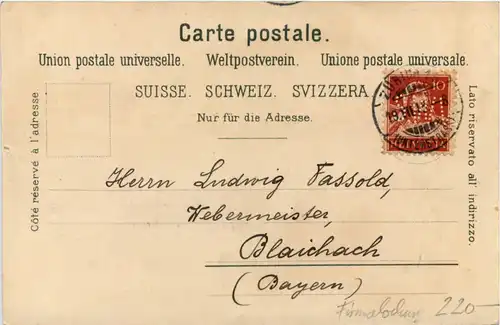 Carte postale.
Union postale universelle. Weltpostverein. Unione postale universale.
SUISSE. SCHWEIZ. SVIZZERA
Nur für die Adresse.
Côté réservé à l'adresse
Lato riservato all' indirizzo.
10
Herrn Ludwig Fassold,
Webermeister,
Blaichach
(Bayern)
Firmalochung 220-